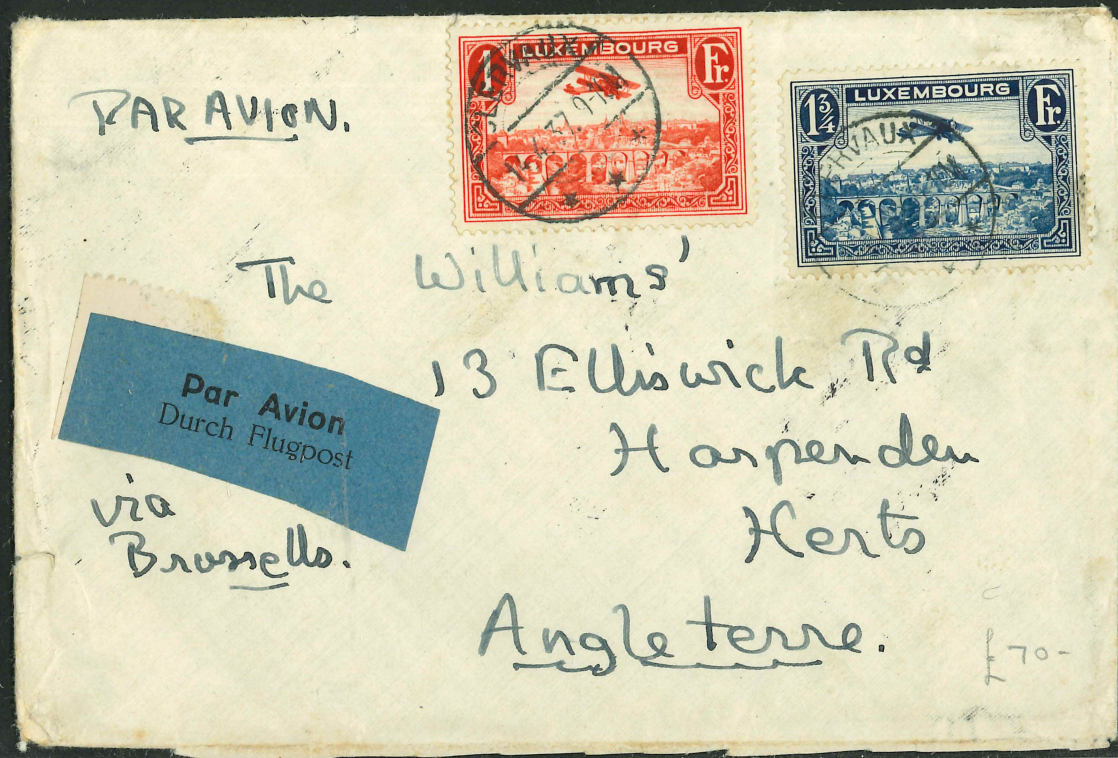 PAR AVION.
1 LUXEMBOURG Fr.
CLERVAUX
1¾ LUXEMBOURG Fr.
ERVAUX
The Williams'
13 Elliswick Rd
Harpenden
Herts
Angleterre.
Par Avion
Durch Flugpost
via
Brussells.
£70-